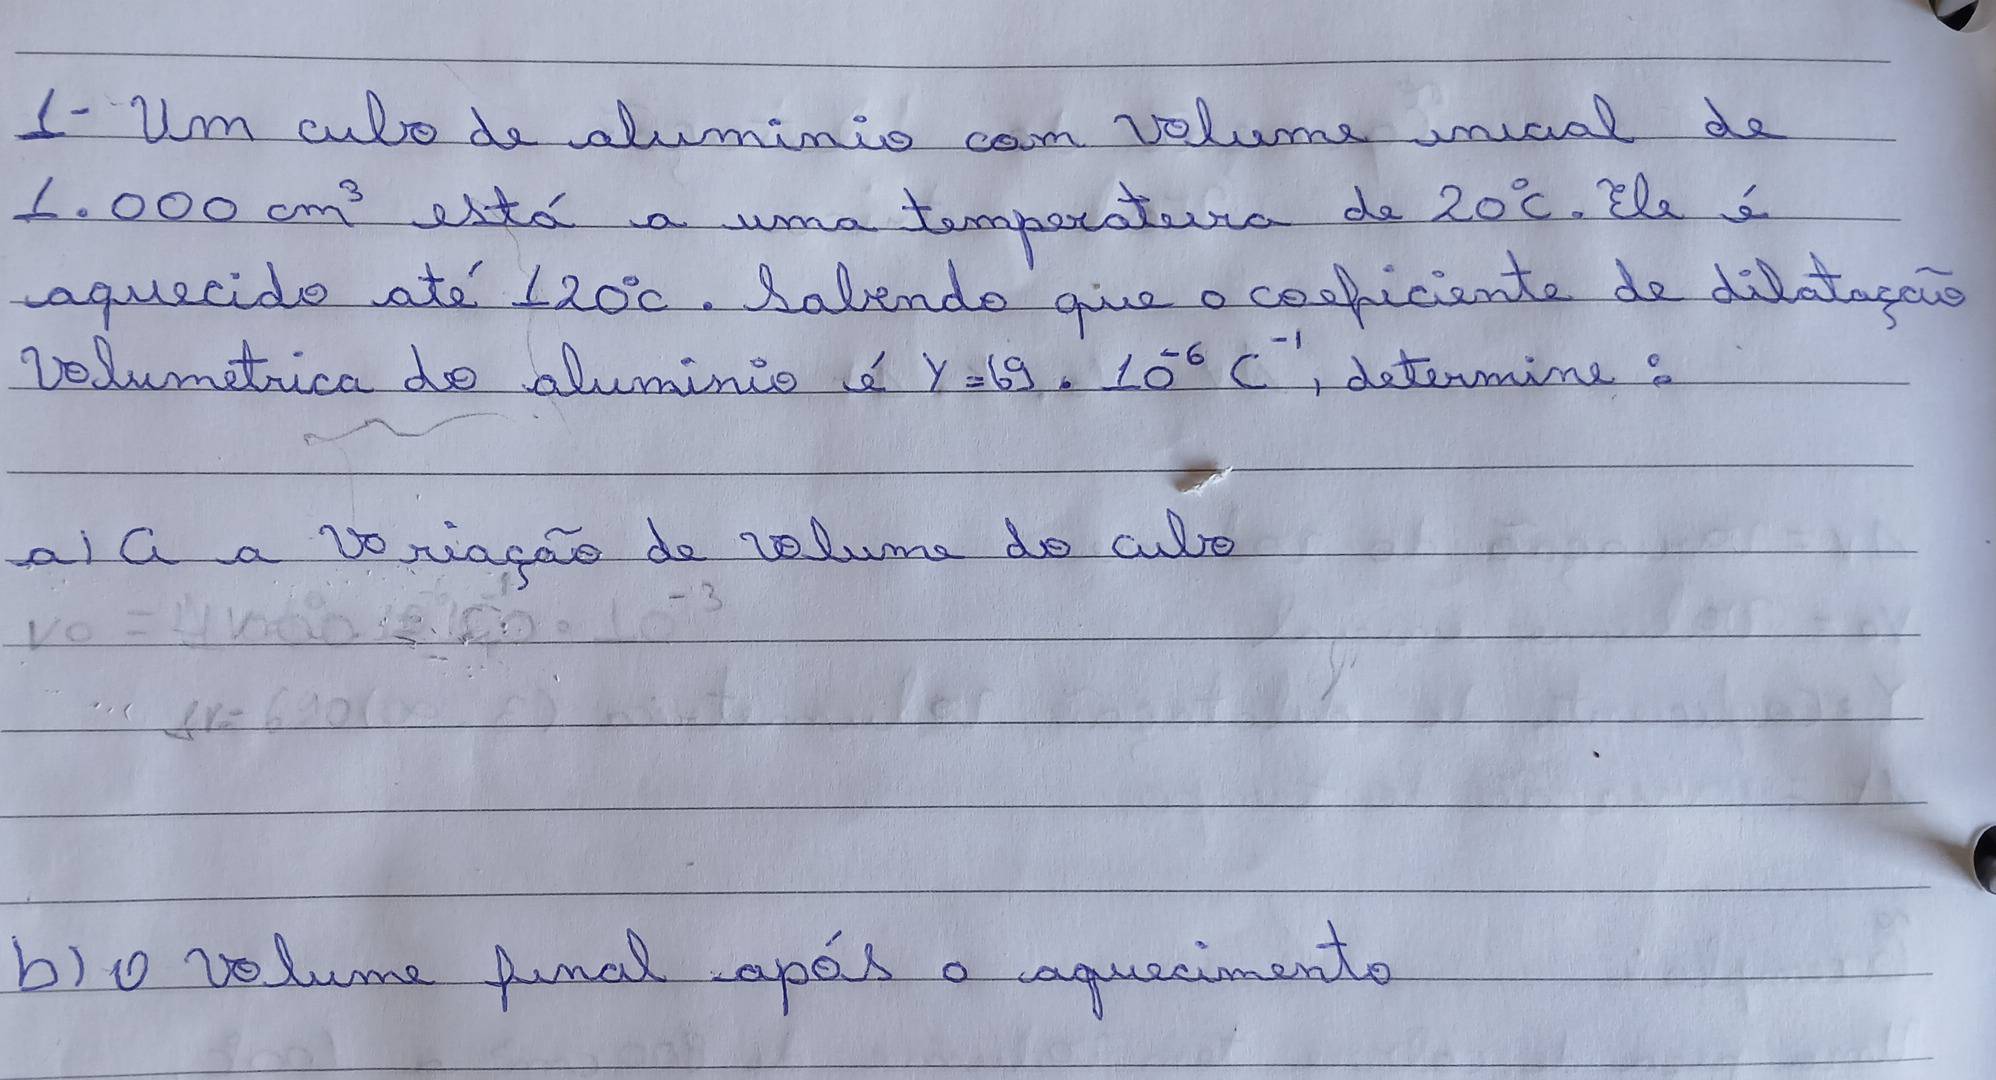 1- Um cubo de aluminio com volume inicial de
1.000 cm³ está a uma temperatura de 20°c. Ele é
aquecido até 120°c. Sabendo que o coeficiente de dilatação
volumetrica do aluminio é γ=69. 10⁻⁶ C⁻¹, determine:
a) A a variação de volume do cubo
vo =
b) o volume final após o aquecimento